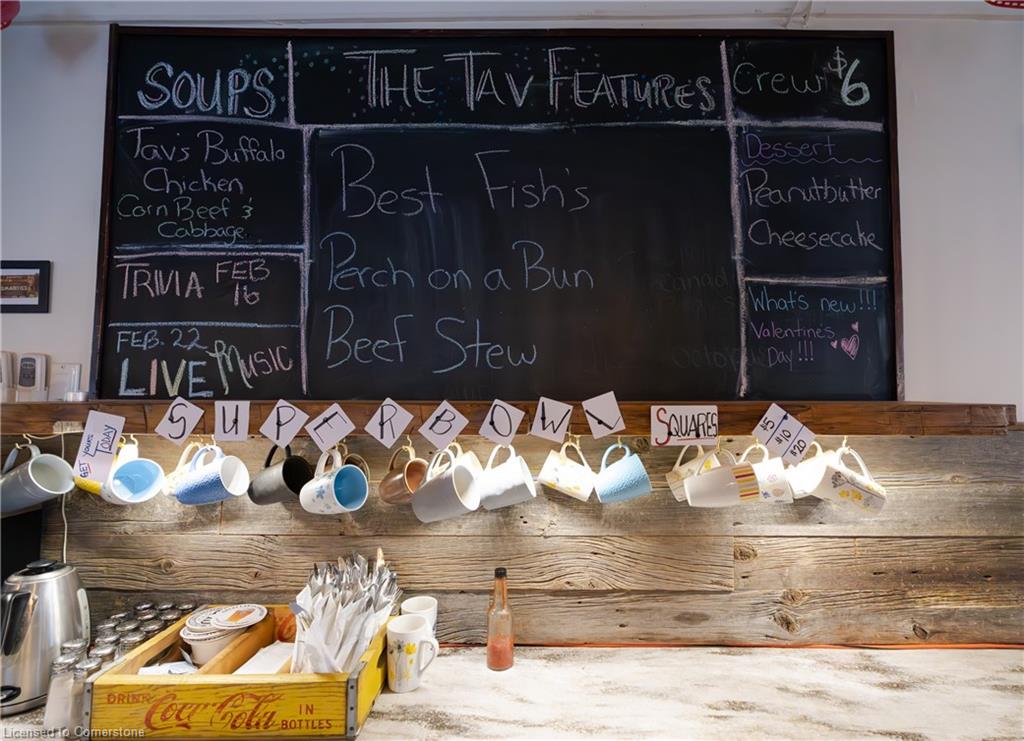 SOUPS
Tav's Buffalo
Chicken
Corn Beef &
Cabbage
TRIVIA FEB
16
FEB. 22
LIVE MUSIC
THE TAV FEATURES
Best Fish's
Perch on a Bun
Beef Stew
Crew $6
Dessert
Peanutbutter
Cheesecake
What's new!!!
Valentines
Day!!!
GET YOURS
TODAY
SUPERBOWL
SQUARES
$5
$10
$20
DRINK
Coca-Cola
IN
BOTTLES
Licensed to Cornerstone